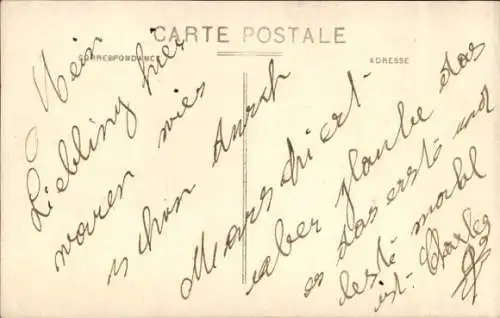 CARTE POSTALE
CORRESPONDANCE
ADRESSE
Mein
Liebling hier
waren wier
schon durch
Marschiert
aber glaube das
es das erste und
leste mahl
ist. Charles